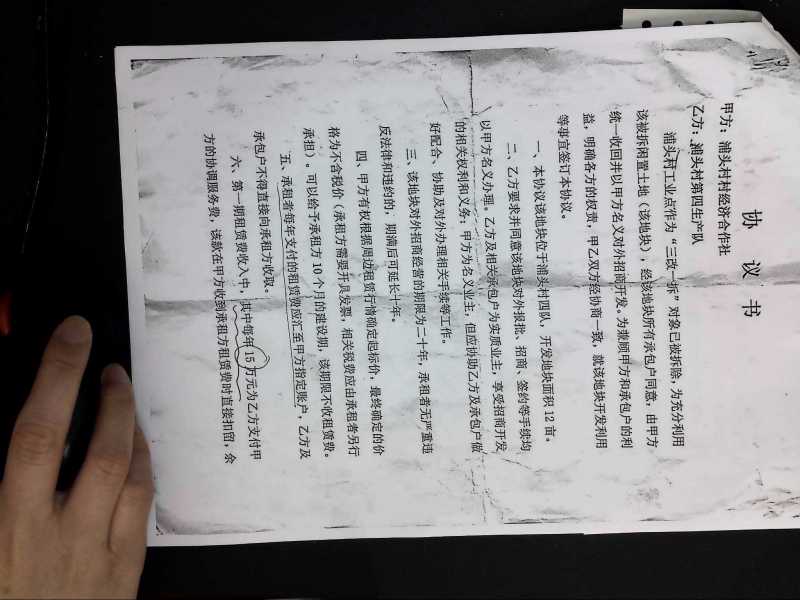 协 议 书
甲方：浦头村村经济合作社
乙方：浦头村第四生产队
浦头村工业点作为“三改一拆”对象已被拆除，为充分利用
该被拆闲置土地（该地块），经该地块所有承包户同意，由甲方
统一收回并以甲方名义对外招商开发。为兼顾甲方和承包户的利
益，明确各方的权责，甲乙双方经协商一致，就该地块开发利用
等事宜签订本协议。
一、本协议该地块位于浦头村四队，开发地块面积 12 亩。
二、乙方要求并同意该地块对外报批、招商、签约等手续均
以甲方名义办理。乙方及相关承包户为实质业主，享受招商开发
的相关权利和义务；甲方为名义业主，但应协助乙方及承包户做
好配合、协助及对外办理相关手续等工作。
三、该地块对外招商经营的期限为二十年，承租者无严重违
反法律和违约的，期满后可延长十年。
四、甲方有权根据周边租赁行情确定起标价，最终确定的价
格为不含税价（承租方需要开具发票，相关税费应由承租者另行
承担）。可以给予承租方 10 个月的建设期，该期限不收租赁费。
五、承租者每年支付的租赁费应汇至甲方指定账户，乙方及
承包户不得直接向承租方收取。
六、第一期租赁费收入中，其中每年 15 万元为乙方支付甲
方的协调服务费，该款在甲方收到承租方租赁费时直接扣留，余